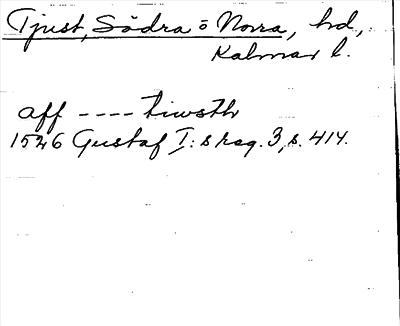 Tjust, Södra o Norra, hd,
Kalmar l.
aff ---- tiwsth
1526 Gustaf I: s reg. 3, s. 414.